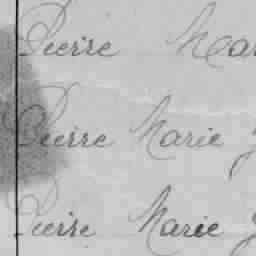 Pierre Mar
Pierre Marie J
Pierre Marie J